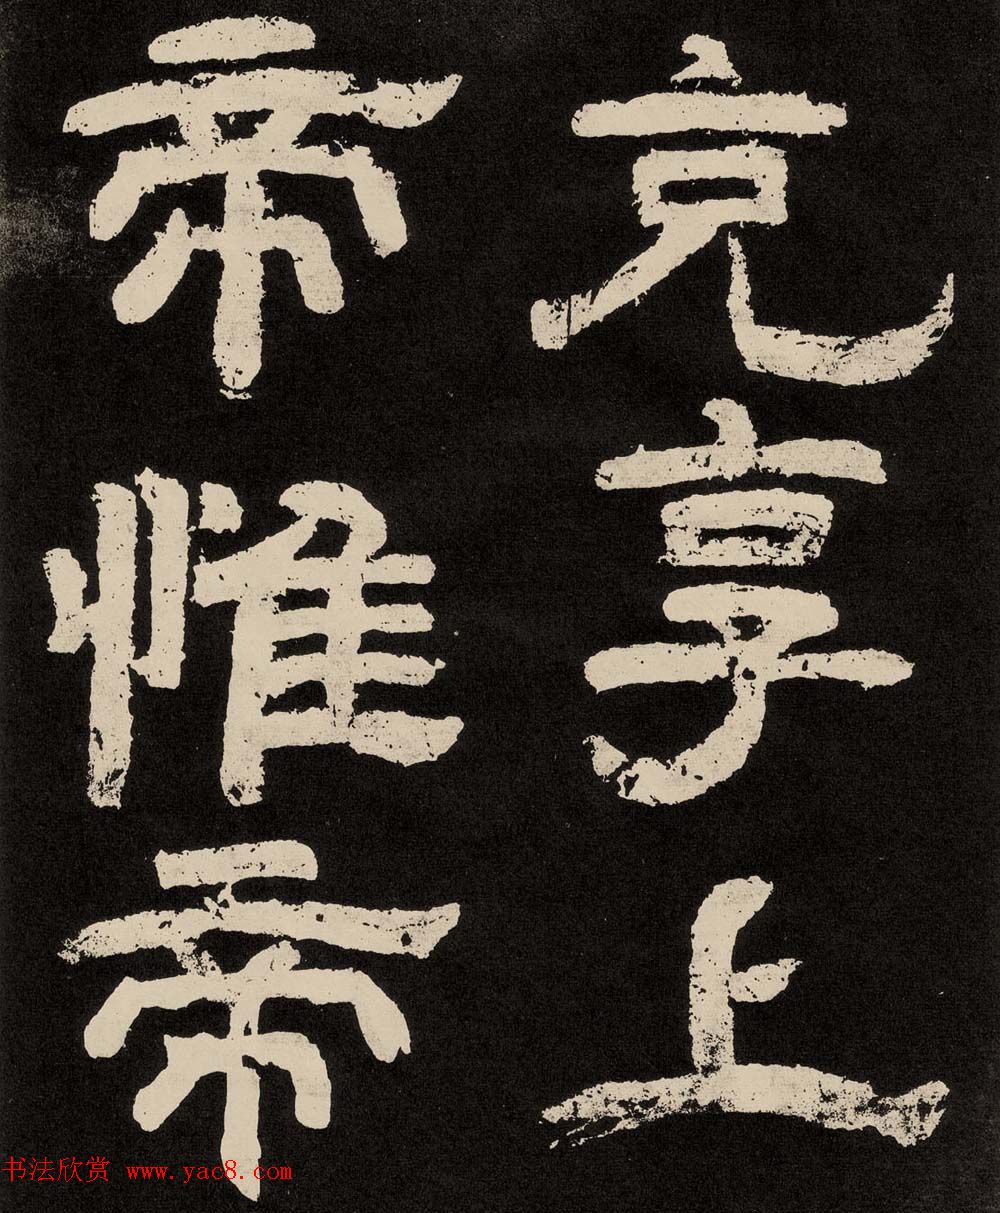 克享上
帝惟帝
书法欣赏 www.yac8.com